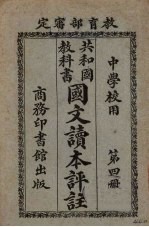 教育部審定
中學校用
第四冊
共和國
教科書
國文讀本評註
商務印書館出版